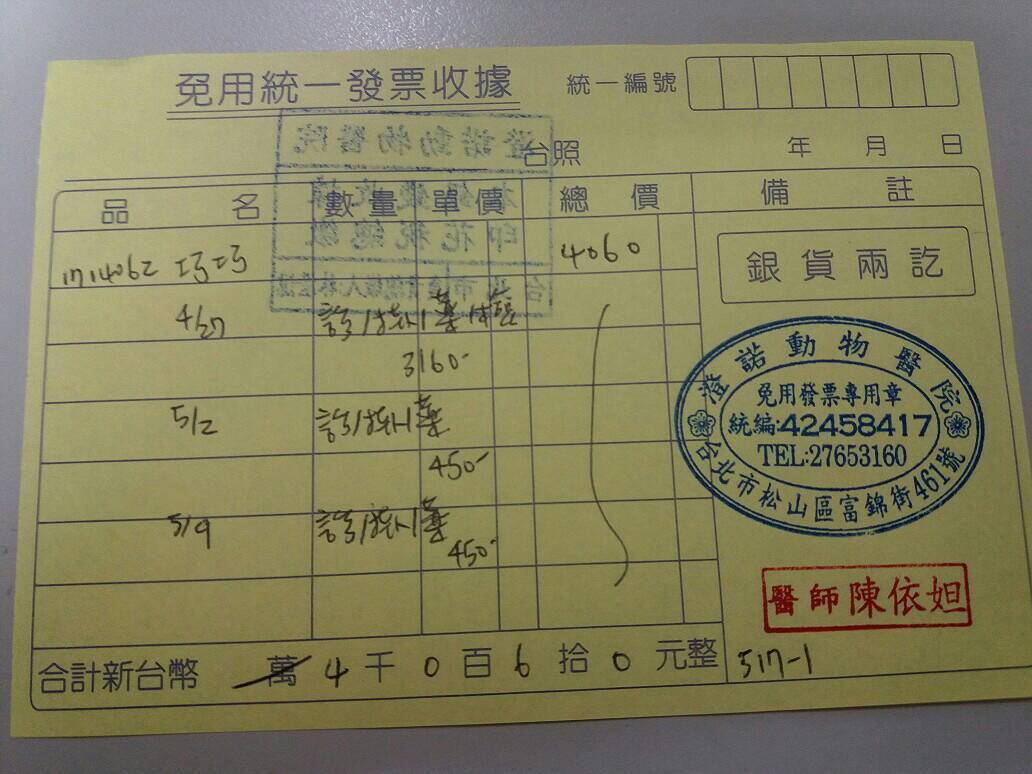 免用統一發票收據
統一編號
台照 年 月 日
品 名 數量 單價 總 價 備 註
1714062 巧巧 4060
銀貨兩訖
4/27 診/掛/藥/
3160-
5/2 診/掛/藥
450-
5/9 診/掛/藥
450-
澄諾動物醫院
免用發票專用章
統編:42458417
TEL:27653160
台北市松山區富錦街461號
醫師陳依妲
合計新台幣 萬 4 千 0 百 6 拾 0 元整
517-1
澄諾動物醫院
印花稅總繳